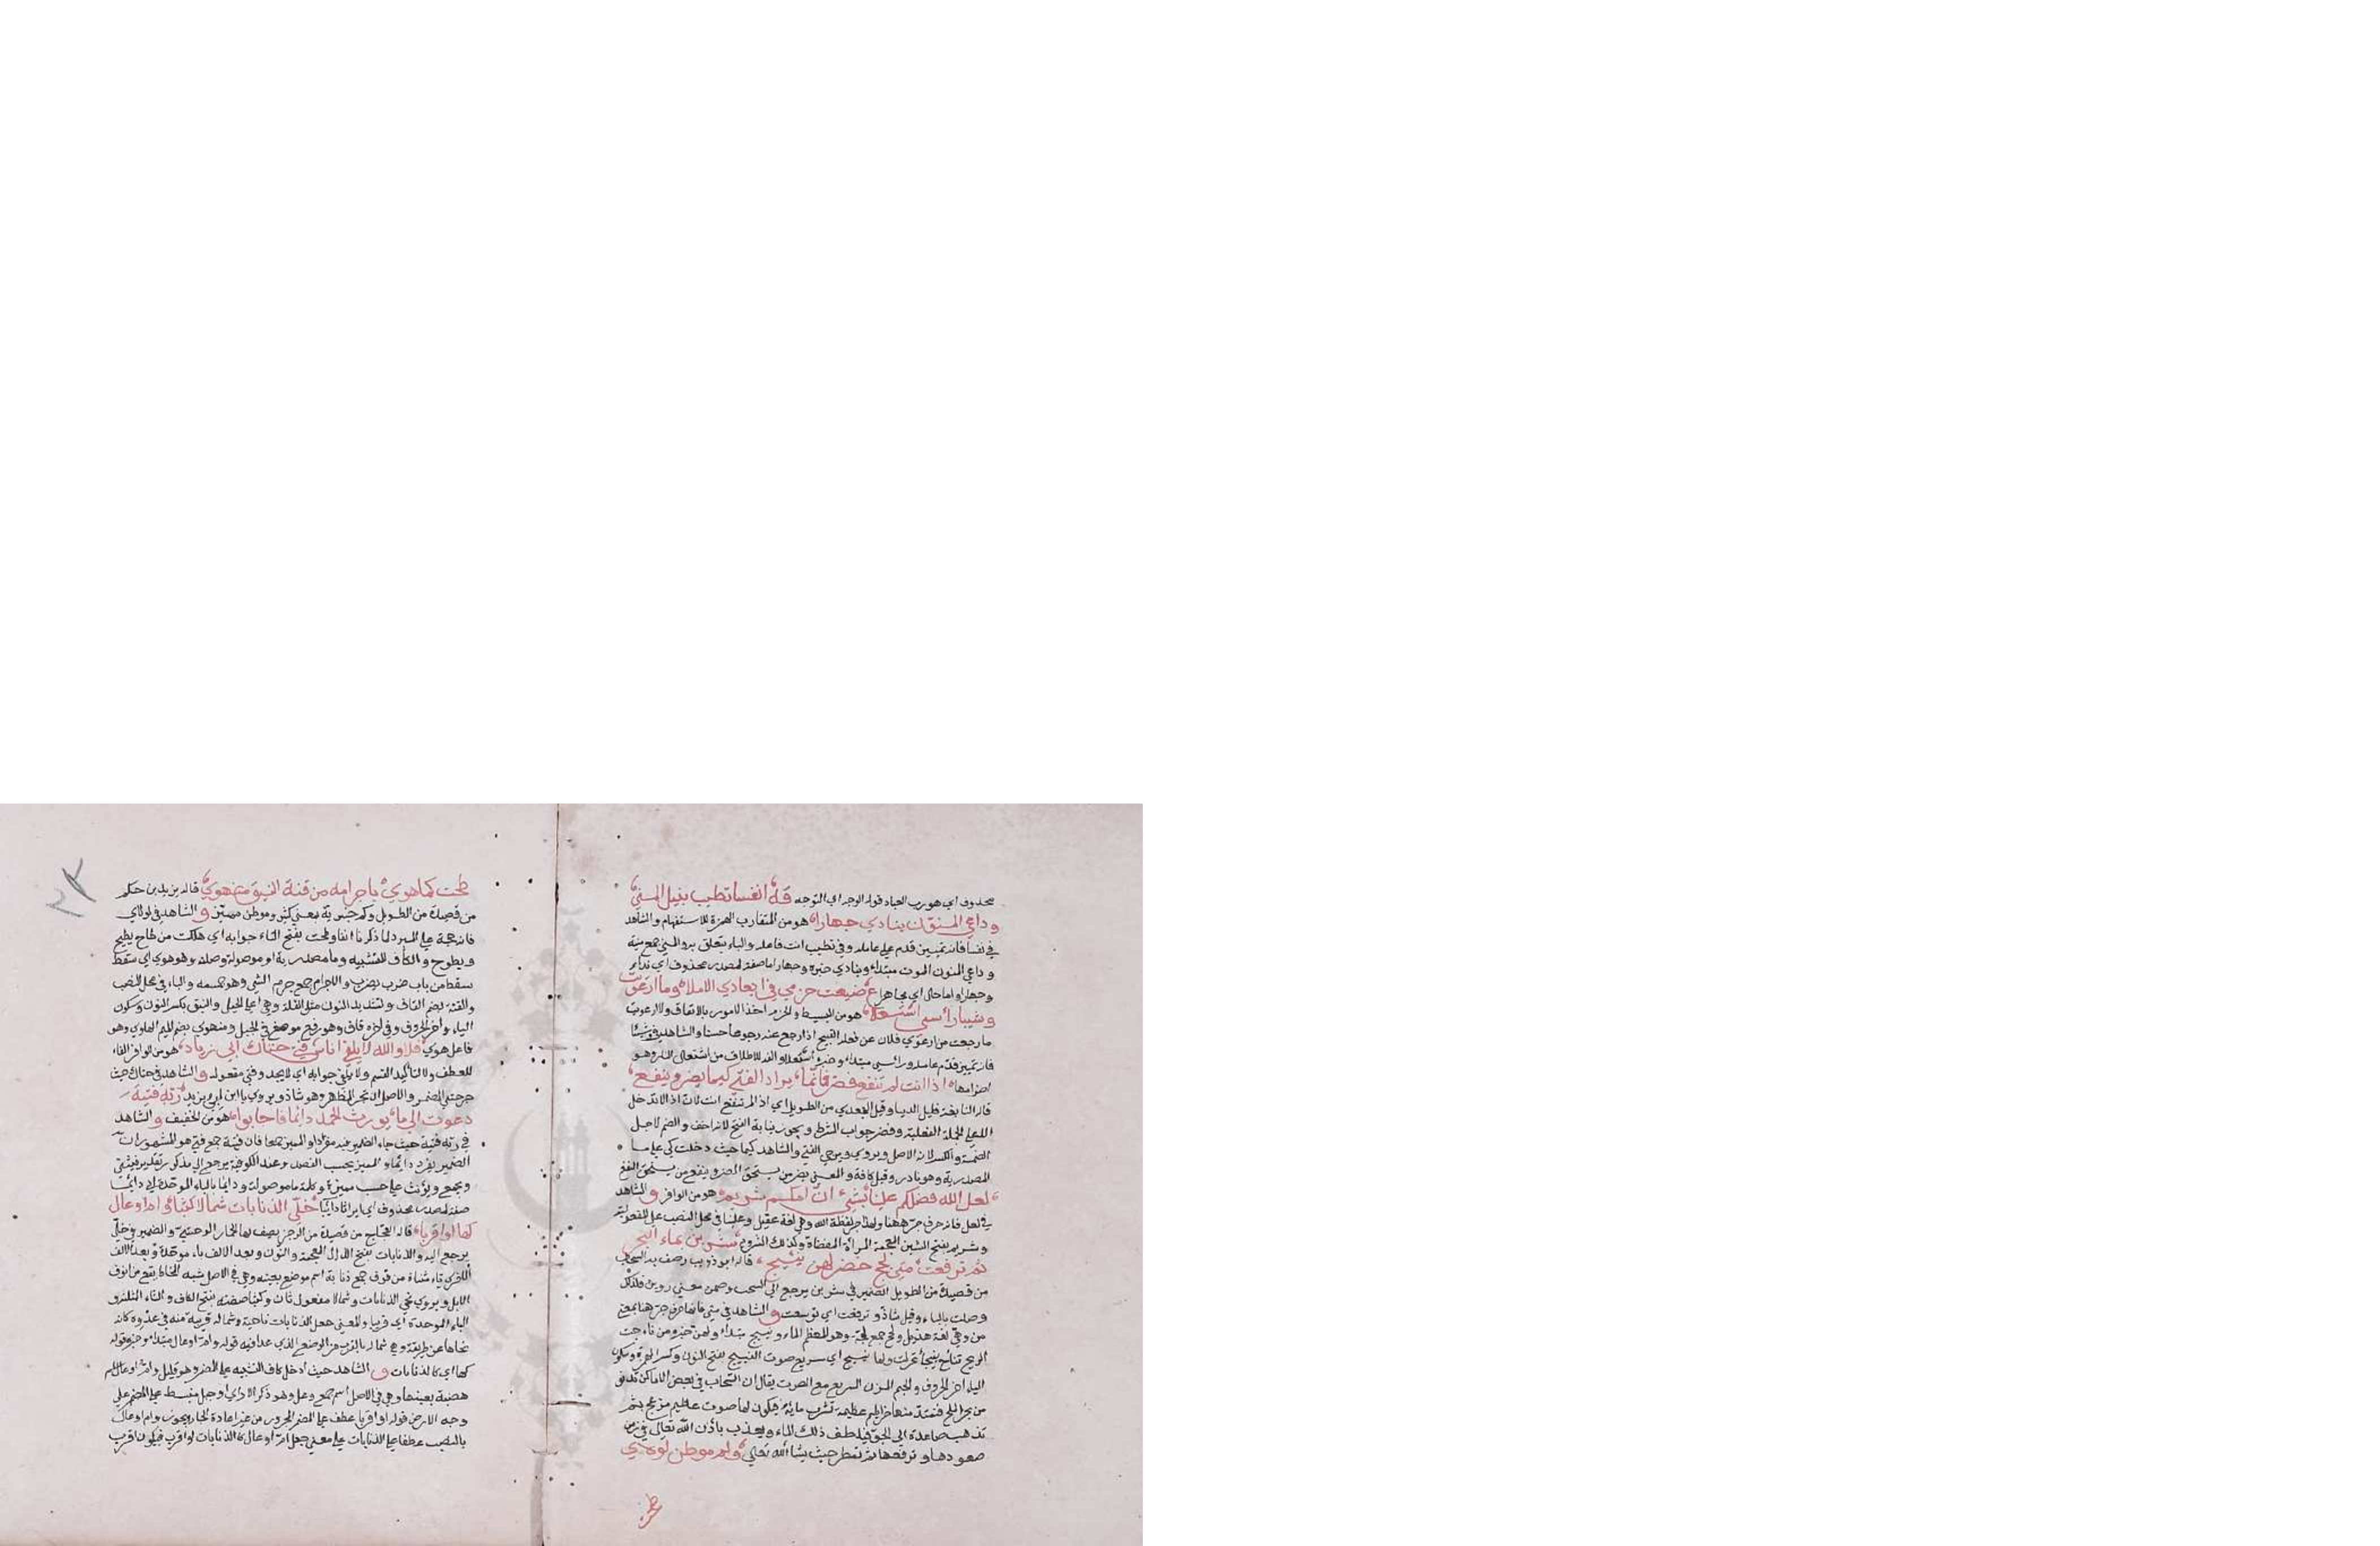 محذوف اي هو رب العباد قوله الوجه اي التوجه قه انفسا تطيب بنيل المني
وداعي المنون ينادي جهارا هو من المتقارب الهمزة للاستفهام والشاهد
في نفسا فانه تمييز قدم على عامله وفي تطيب انت فاعله والباء يتعلق به والمني جمع منية
وداعي المنون الموت مبتداء وينادي خبره وجهارا اما صفة لمصدر محذوف اي نداء
وجهارا واما حال اي مجاهرا ع ضيعت حزمي في ابعادي الاملا وما ارعويت
وشيبا راسي اشتعلا هو من البسيط والحزم اخذ الامور بالاتقاف ولا ارعويت
ما رجعت من ارعوي فلان عن فعله القبيح اذا رجع عنه رجوعا حسنا والشاهد في شيبا
فانه تمييز قدم عامله وراسي مبتداء وخبره اشتعلا والفه للاطلاق من اشتعال النار وهو
اضرامها اذا انت لم تنفع فضر فانما يراد الفتى كيما يضر وينفع
قاله النابغة قيل الذبياني وقيل الجعدي من الطويل اي اذا لم تنفع انت لان اذا لا تدخل
الا على الجملة الفعلية وفضر جواب الشرط ويجوز نيابة الفتح لانه اخف والضم لاجل
الضمة والكسر لانه الاصل ويروي ويرجي الفتي والشاهد كيما حيث دخلت كي على ما
المصدرية وهو نادر وقيل كافة والمعنى يضر من يستحق الضر وينفع من يستحق النفع
لعل الله فضلكم علينا بشيء ان امكم شريم هو من الوافر والشاهد
في لعل فانه حرف جر ههنا ولهذا جر لفظة الله وهي لغة عقيل وعلينا في محل النصب على المفعولية
وشريم بفتح الشين المعجمة المراة المفضاة وكذلك الشروم شربن بماء البحر
ثم ترفعت متى لجج خضر لهن نئيج قاله ابو ذويب وصف به السحاب
من قصيدة من الطويل الضمير في شربن يرجع الى السحب وضمن معنى روين فلذلك
وصلت بالباء وقيل شاذ و ترفعت اي توسعت والشاهد في متى فانها حرف جر هنا بمعني
من وهي لغة هذيل ولجج جمع لجة وهو للعظم الماء ونئيج مبتداء ولهن خبره من ناجت
الريح تناج نئيجا تحركت ولها نئيج اي سريع صوت النئيج بفتح النون وكسر الهمزة وسكون
الياء اخر الحروف والجيم المرن السريع مع الصوت يقال ان السحاب في بعض الاماكن تدنو
من بحر الملح فتمتد منها خراطيم عظيمة تشرب مايه فيكون لها صوت عظيم مزعج ثم
تذهب صاعدة الى الجو فيلطف ذلك الماء ويعذب باذن الله تعالى في زمن
صعودها و ترفعها ثم تمطر حيث يشا الله تعالي ولم موطن لولاي
طحت
طحت كما هوي باجرامه من قنة النيق منهوي قاله يزيد بن حكم
من قصيدة من الطويل وكم خبرية بمعنى كثير وموطن مميز و الشاهد في لولاي
فانه حجة على المبرد لما ذكرنا انفا وطحت بفتح التاء جوابه اي هلكت من طاح يطيح
ويطوح والكاف للتشبيه وما مصدرية او موصولة وصلته وهو هوي اي سقط
سقط من باب ضرب يضرب والاجرام جمع جرم الشي وهو جسمه والباء في محل النصب
والقنة بضم القاف وتشديد النون مثل القلة وهي اعلى الجبل والنيق بكسر النون وسكون
الياء واخر الحروف وفي اخره قاف وهو رفع موضع في الجبل ومنهوي بضم الميم الهاوي وهو
فاعل هوي فلا والله لا يلفي اناس فتى حتاك ابي زياد هو من الوافر الفاء
للعطف ولا لتاكيد القسم ولا يلفي جوابه اي لا يجد وفتى مفعوله و الشاهد في حتاك حيث
جر حتى الضمير والاصل ان تجر المظهر وهو شاذ ويروي يا ابن ابي يزيد ربه فتية
دعوت الى ما يورث الحمد دائما فاجابوا هو من الخفيف و الشاهد
في ربه فتية حيث جاء الضمير فيه مفردا والمميز جمعا فان فتية جمع فتى هو المشهور ان
الضمير يفرد دائما و المميز بحسب القصد وعند الكوفية يرجع الى مذكور تقديرا فيثني
ويجمع ويؤنث على حسب مميزه وكلمة ما موصولة ودايما بالباء الموحدة اي دائبا
صفة لمصدر محذوف اي ايراثا دائبا خلى الذنابات شمالا كثبا وام اوعال
كها او اقربا قاله العجاج من قصيدة من الرجز يصف بها الحمار الوحشي والضمير في خلى
يرجع اليه والذنابات بفتح الذال المعجمة والنون وبعد الالف باء موحدة وبعد الالف
الاخرى تاء مثناة من فوق جمع ذنابة اسم موضع بعينه وهي في الاصل شبه المخاط يقع من انوف
الابل ويروي نحي الذنابات وشمالا مفعول ثان وكثبا صفته بفتح الكاف والثاء المثلثة و
الباء الموحدة اي قريبا والمعنى جعل الذنابات ناحية وشماله قريبة منه في عدوه كانه
نحاها عن طريقه وهي شماله بالقرب من الموضع الذي عدا فيه قوله وام اوعال مبتداء وخبره قوله
كها اي كالذنابات و الشاهد حيث ادخل كاف التشبيه على المضمر وهو قليل وام اوعال اسم
هضبة بعينها وهي في الاصل اسم جمع وعل وهو ذكر الاروي او جبل منبسط على
وجه الارض قوله او اقربا عطف على المضمر المجرور من غير اعادة الجار ويجوز وام اوعال
بالنصب عطفا على الذنابات على معنى جعل ام اوعال كالذنابات او اقرب فيكون اقرب